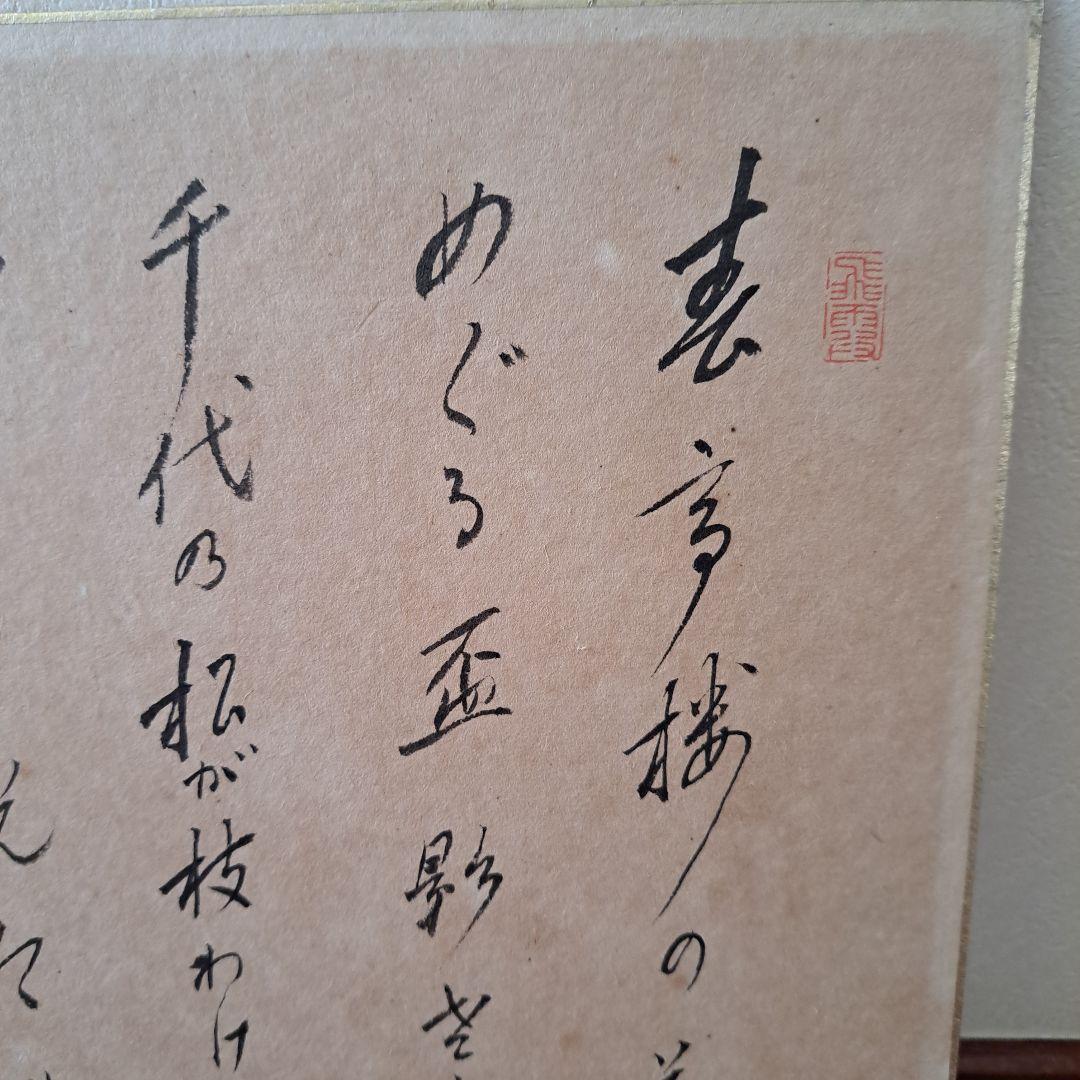 春高楼の
めぐる盃影
千代の松が枝わけ